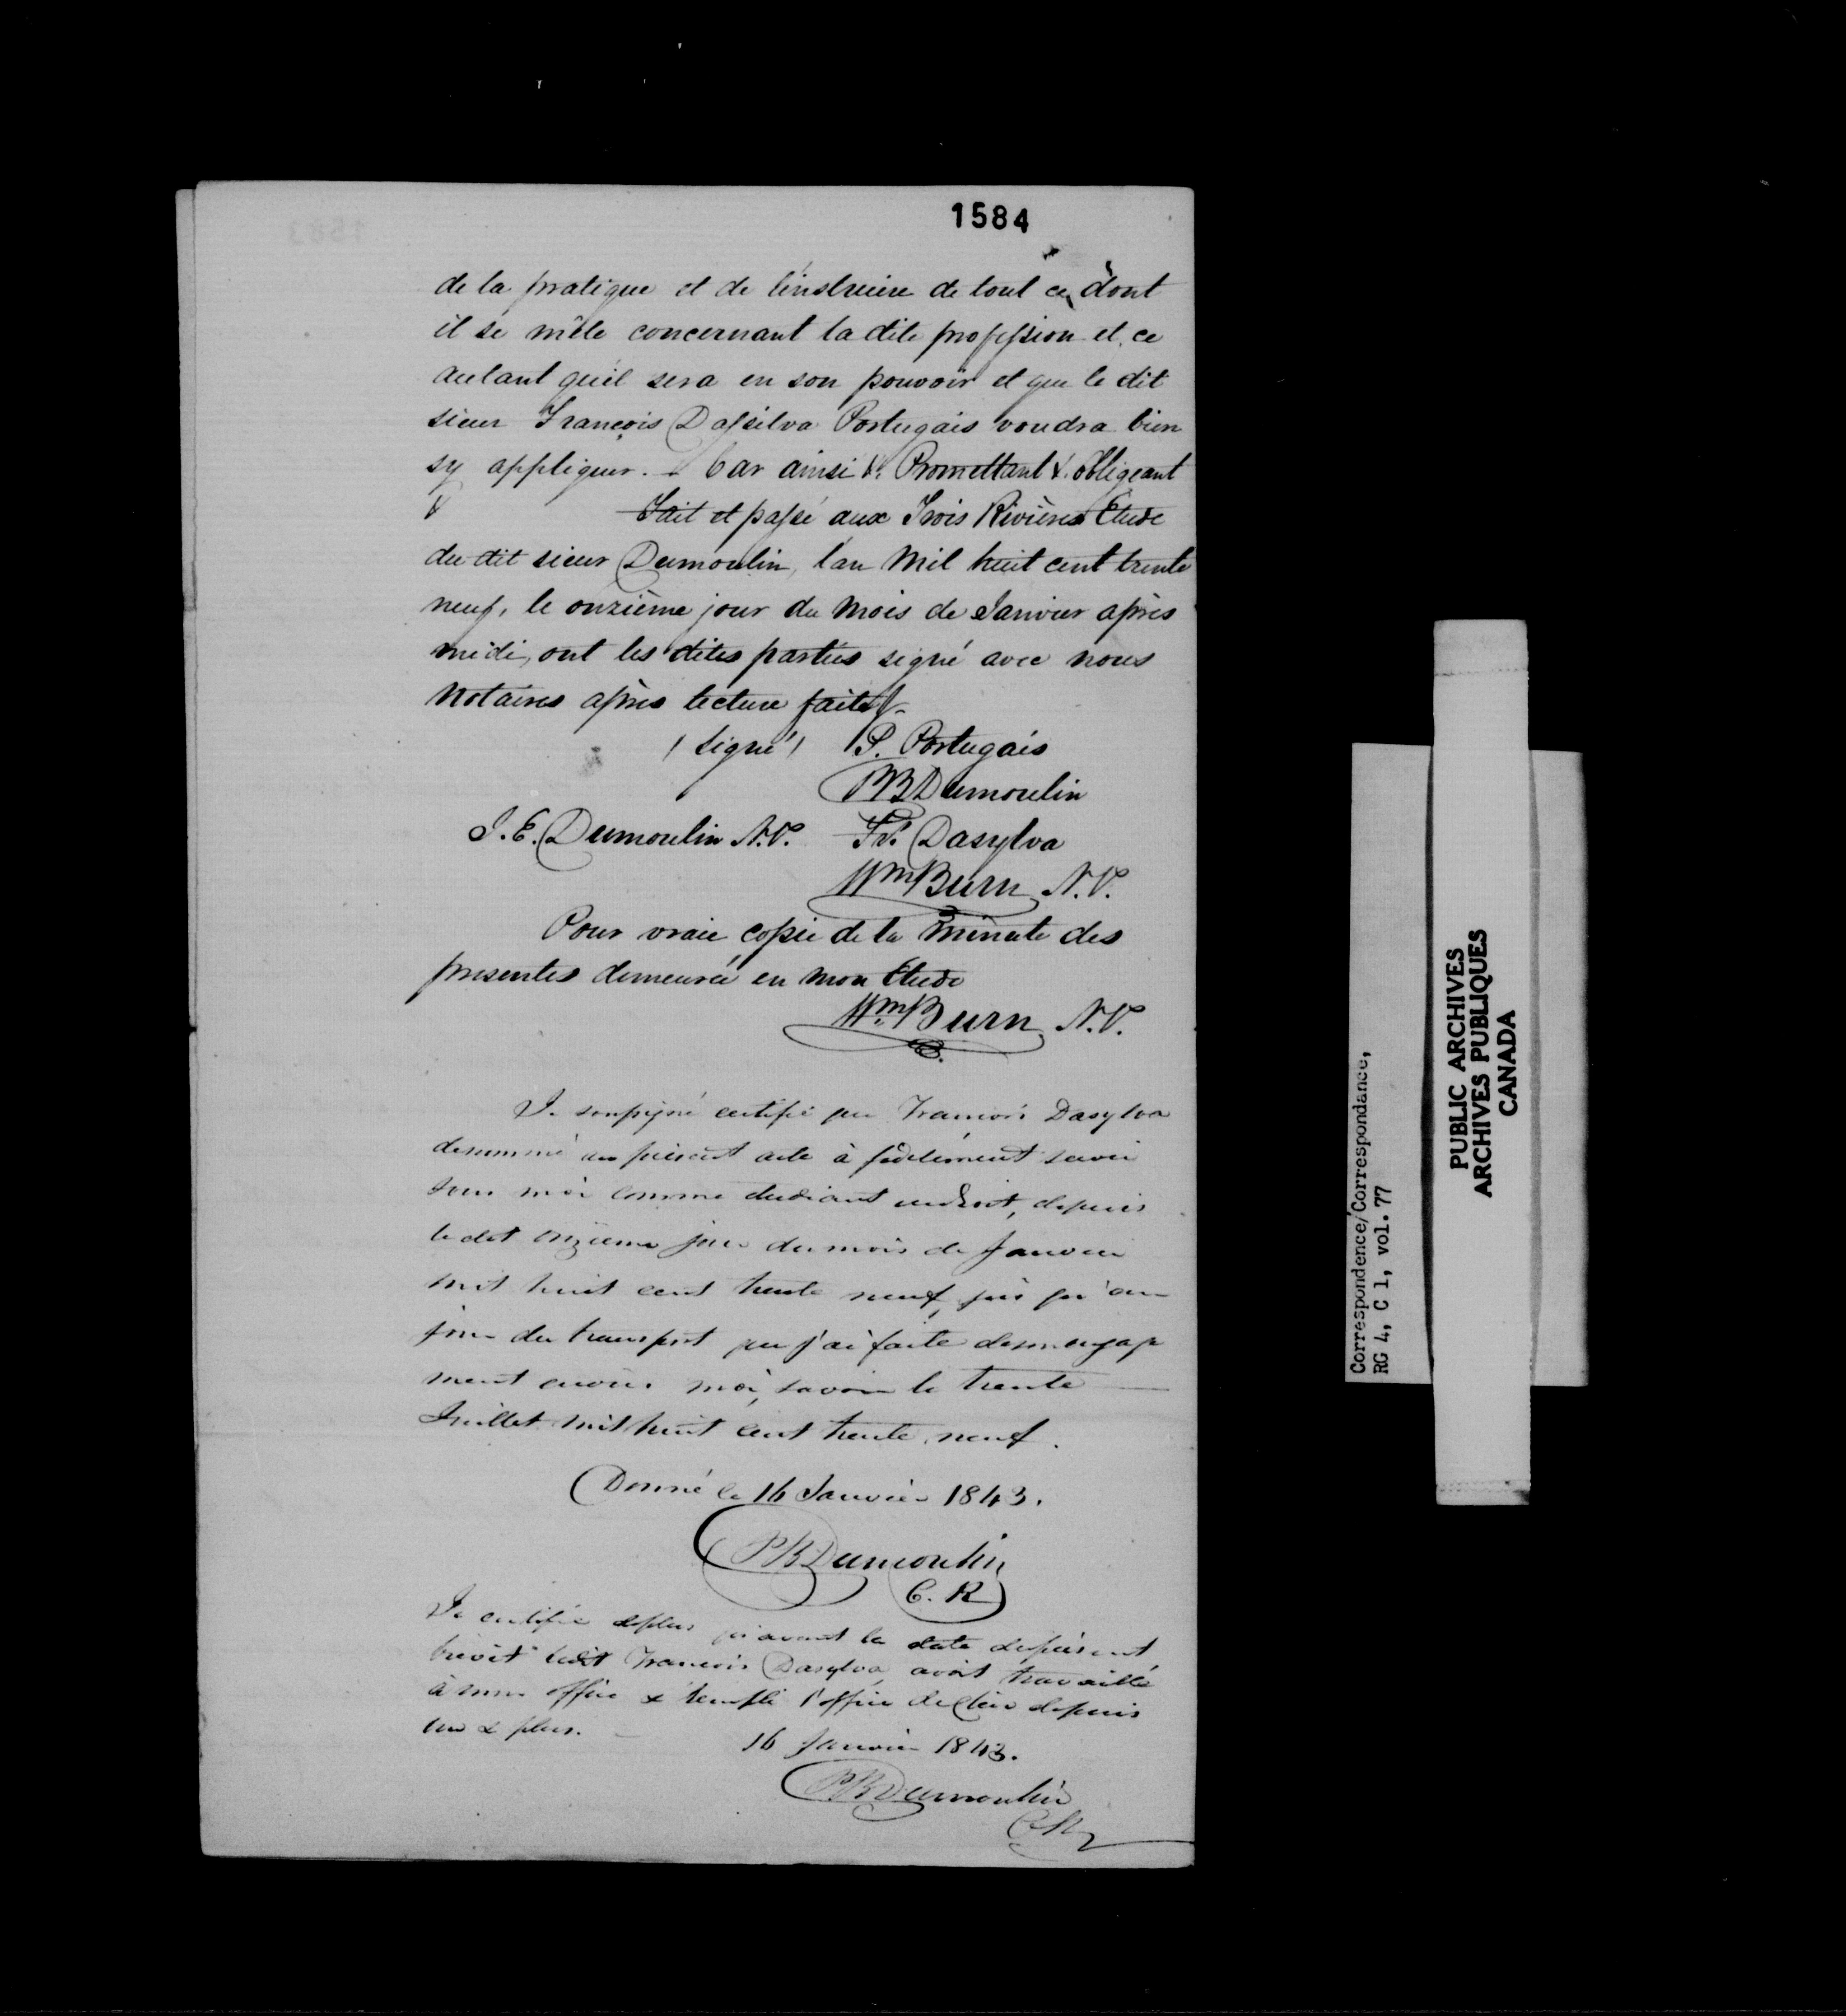 1584
de la pratique et de l'instruire de tout ce dont
il se mêle concernant la dite profession et ce
autant qu'il sera en son pouvoir et que le dit
sieur François Dassilva Portugais voudra bien
sy appliquer. Car ainsi &. Promettant &. obligeant
& Fait et passé aux Trois Rivières Etude
du dit sieur Dumoulin, l'an Mil huit cent trente
neuf, le onzième jour du mois de Janvier après
midi, ont les dites parties signé avec nous
Notaires après lecture faite
(signé) P. Portugais
PB Dumoulin
J. E. Dumoulin N.P. Fr. Dasylva
Wm Burn N.P.
Pour vraie copie de la minute des
presentes demeurée en mon Etude
Wm Burn N.P.
Je soussigné certifie que Francois Dasylva
denommé au présent acte à fidèlement servi
sous moi comme étudiant en droit, depuis
le dit onzieme jour du mois de Janvier
mil huit cent trente neuf, jus qu'au
jour du transport que j'ai faite de son engage
ment envers moi, savoir le trente
Juillet mil huit cent trente neuf.
Donné le 16 Janvier 1843.
PB Dumoulin
C. R
Je certifie de plus qu'avant la date du présent
brevêt ledit Francois Dasylva avoit travaillé
à mon office & rempli l'office de Clerc depuis
un & plus.
16 Janvier 1843.
PB Dumoulin
CR
Correspondence/Correspondance,
RG 4, C 1, vol. 77
PUBLIC ARCHIVES
ARCHIVES PUBLIQUES
CANADA